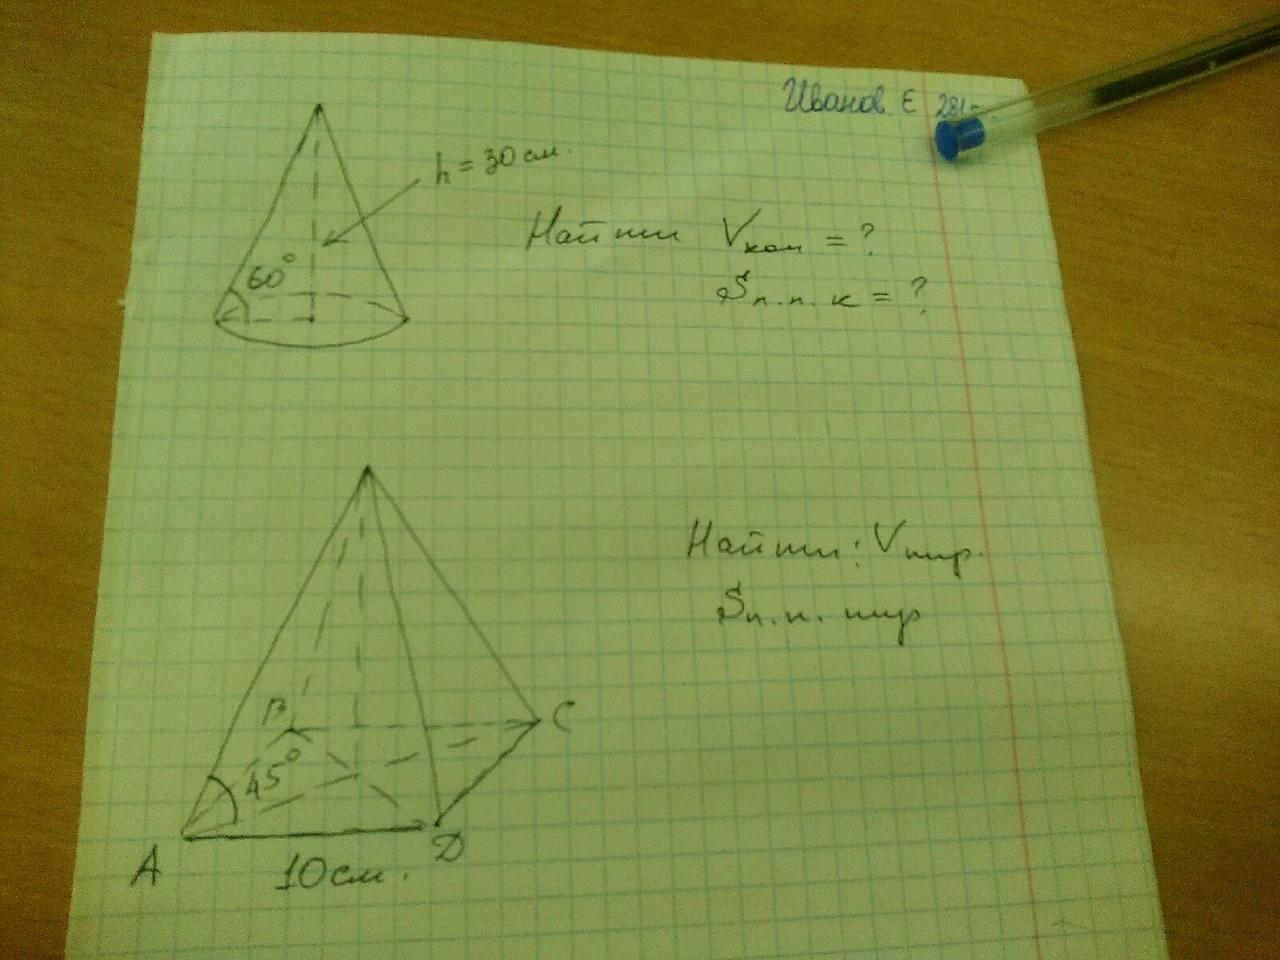 Иванов. Е
h = 30 см.
60°
Найти Vкон = ?
Sп.п.к = ?
Найти: Vпир.
Sп.п. пир
B
C
45°
A
D
10 см.